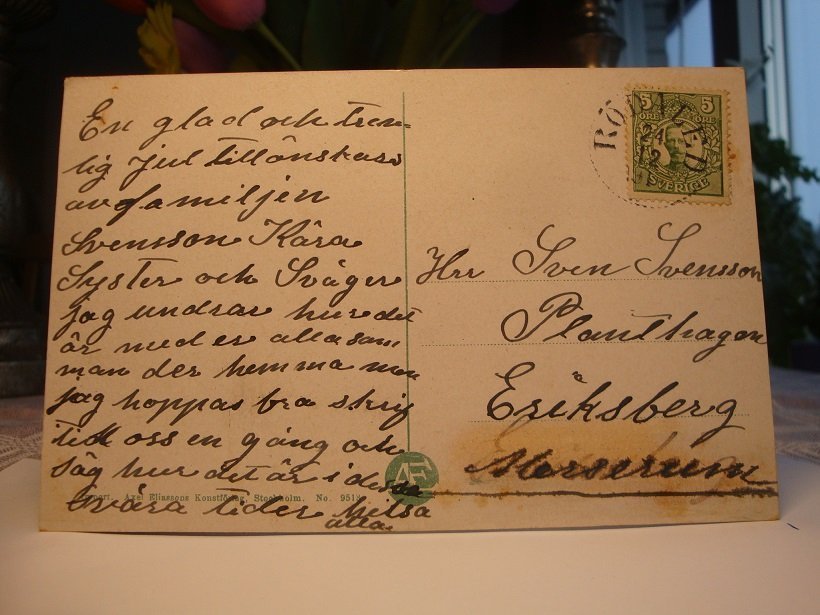 En glad och trev-
lig jul tillönskas
av familjen
Svensson Kära
Syster och Svåger
jag undrar hur det
är med er allasam
man der hemma men
jag hoppas bra skrif
till oss en gång och
säg hur det är i dessa
svåra tider hilsa
alla
Axel Eliassons Konstförlag, Stockholm. No. 951
AE
5 5
ÖRE ÖRE
SVERIGE
21
12
Herr Sven Svensson
Planthagen
Eriksberg
Morserum